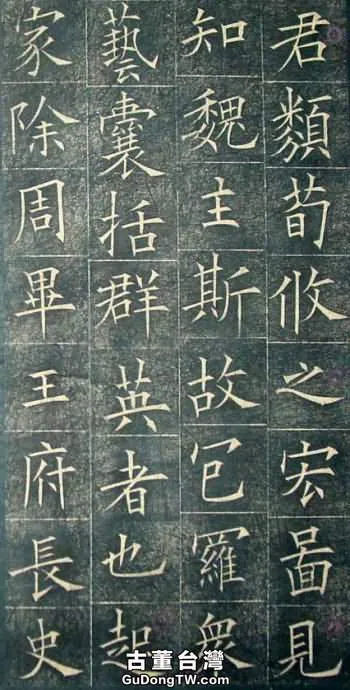 君類荀攸之宏啚見
知魏主斯故包羅衆
藝囊括群英者也起
家除周畢王府長史
古董台灣
GuDongTW.com